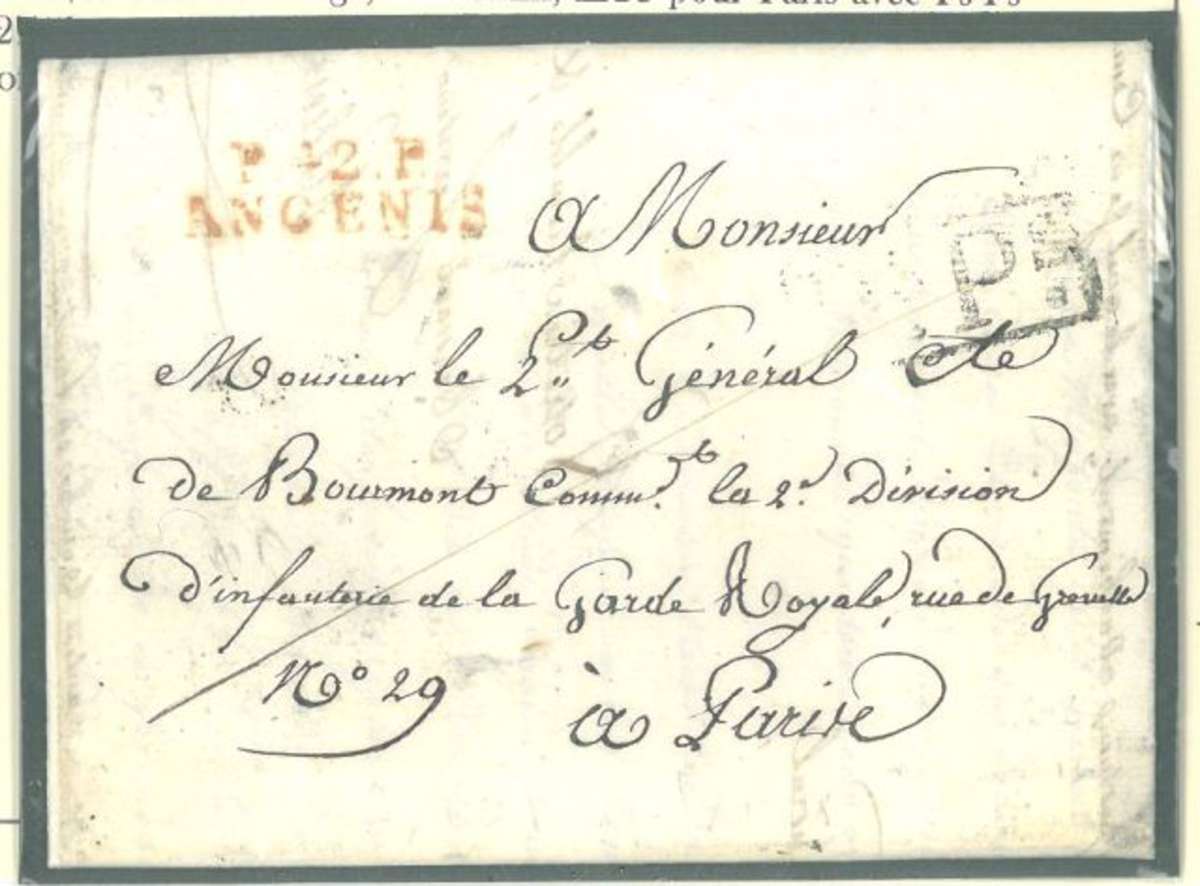 pour Paris avec PsPs
P.42.P.
ANCENIS
a Monsieur
P.
Monsieur le Lt. Général Cte
de Bourmont Commt. la 2e. Division
d'infanterie de la Garde Royale, rue de Grenelle
No 29
à Paris